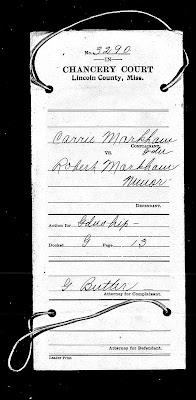 No. 3290
IN
CHANCERY COURT
Lincoln County, Miss.
Carrie Markham
COMPLAINANT, Gdn
VS.
Robert Markham
Minor
DEFENDANT.
Action for Gdnship
Docket G Page 13
G Butler
Attorney for Complainant.
Attorney for Defendant.
Leader Print